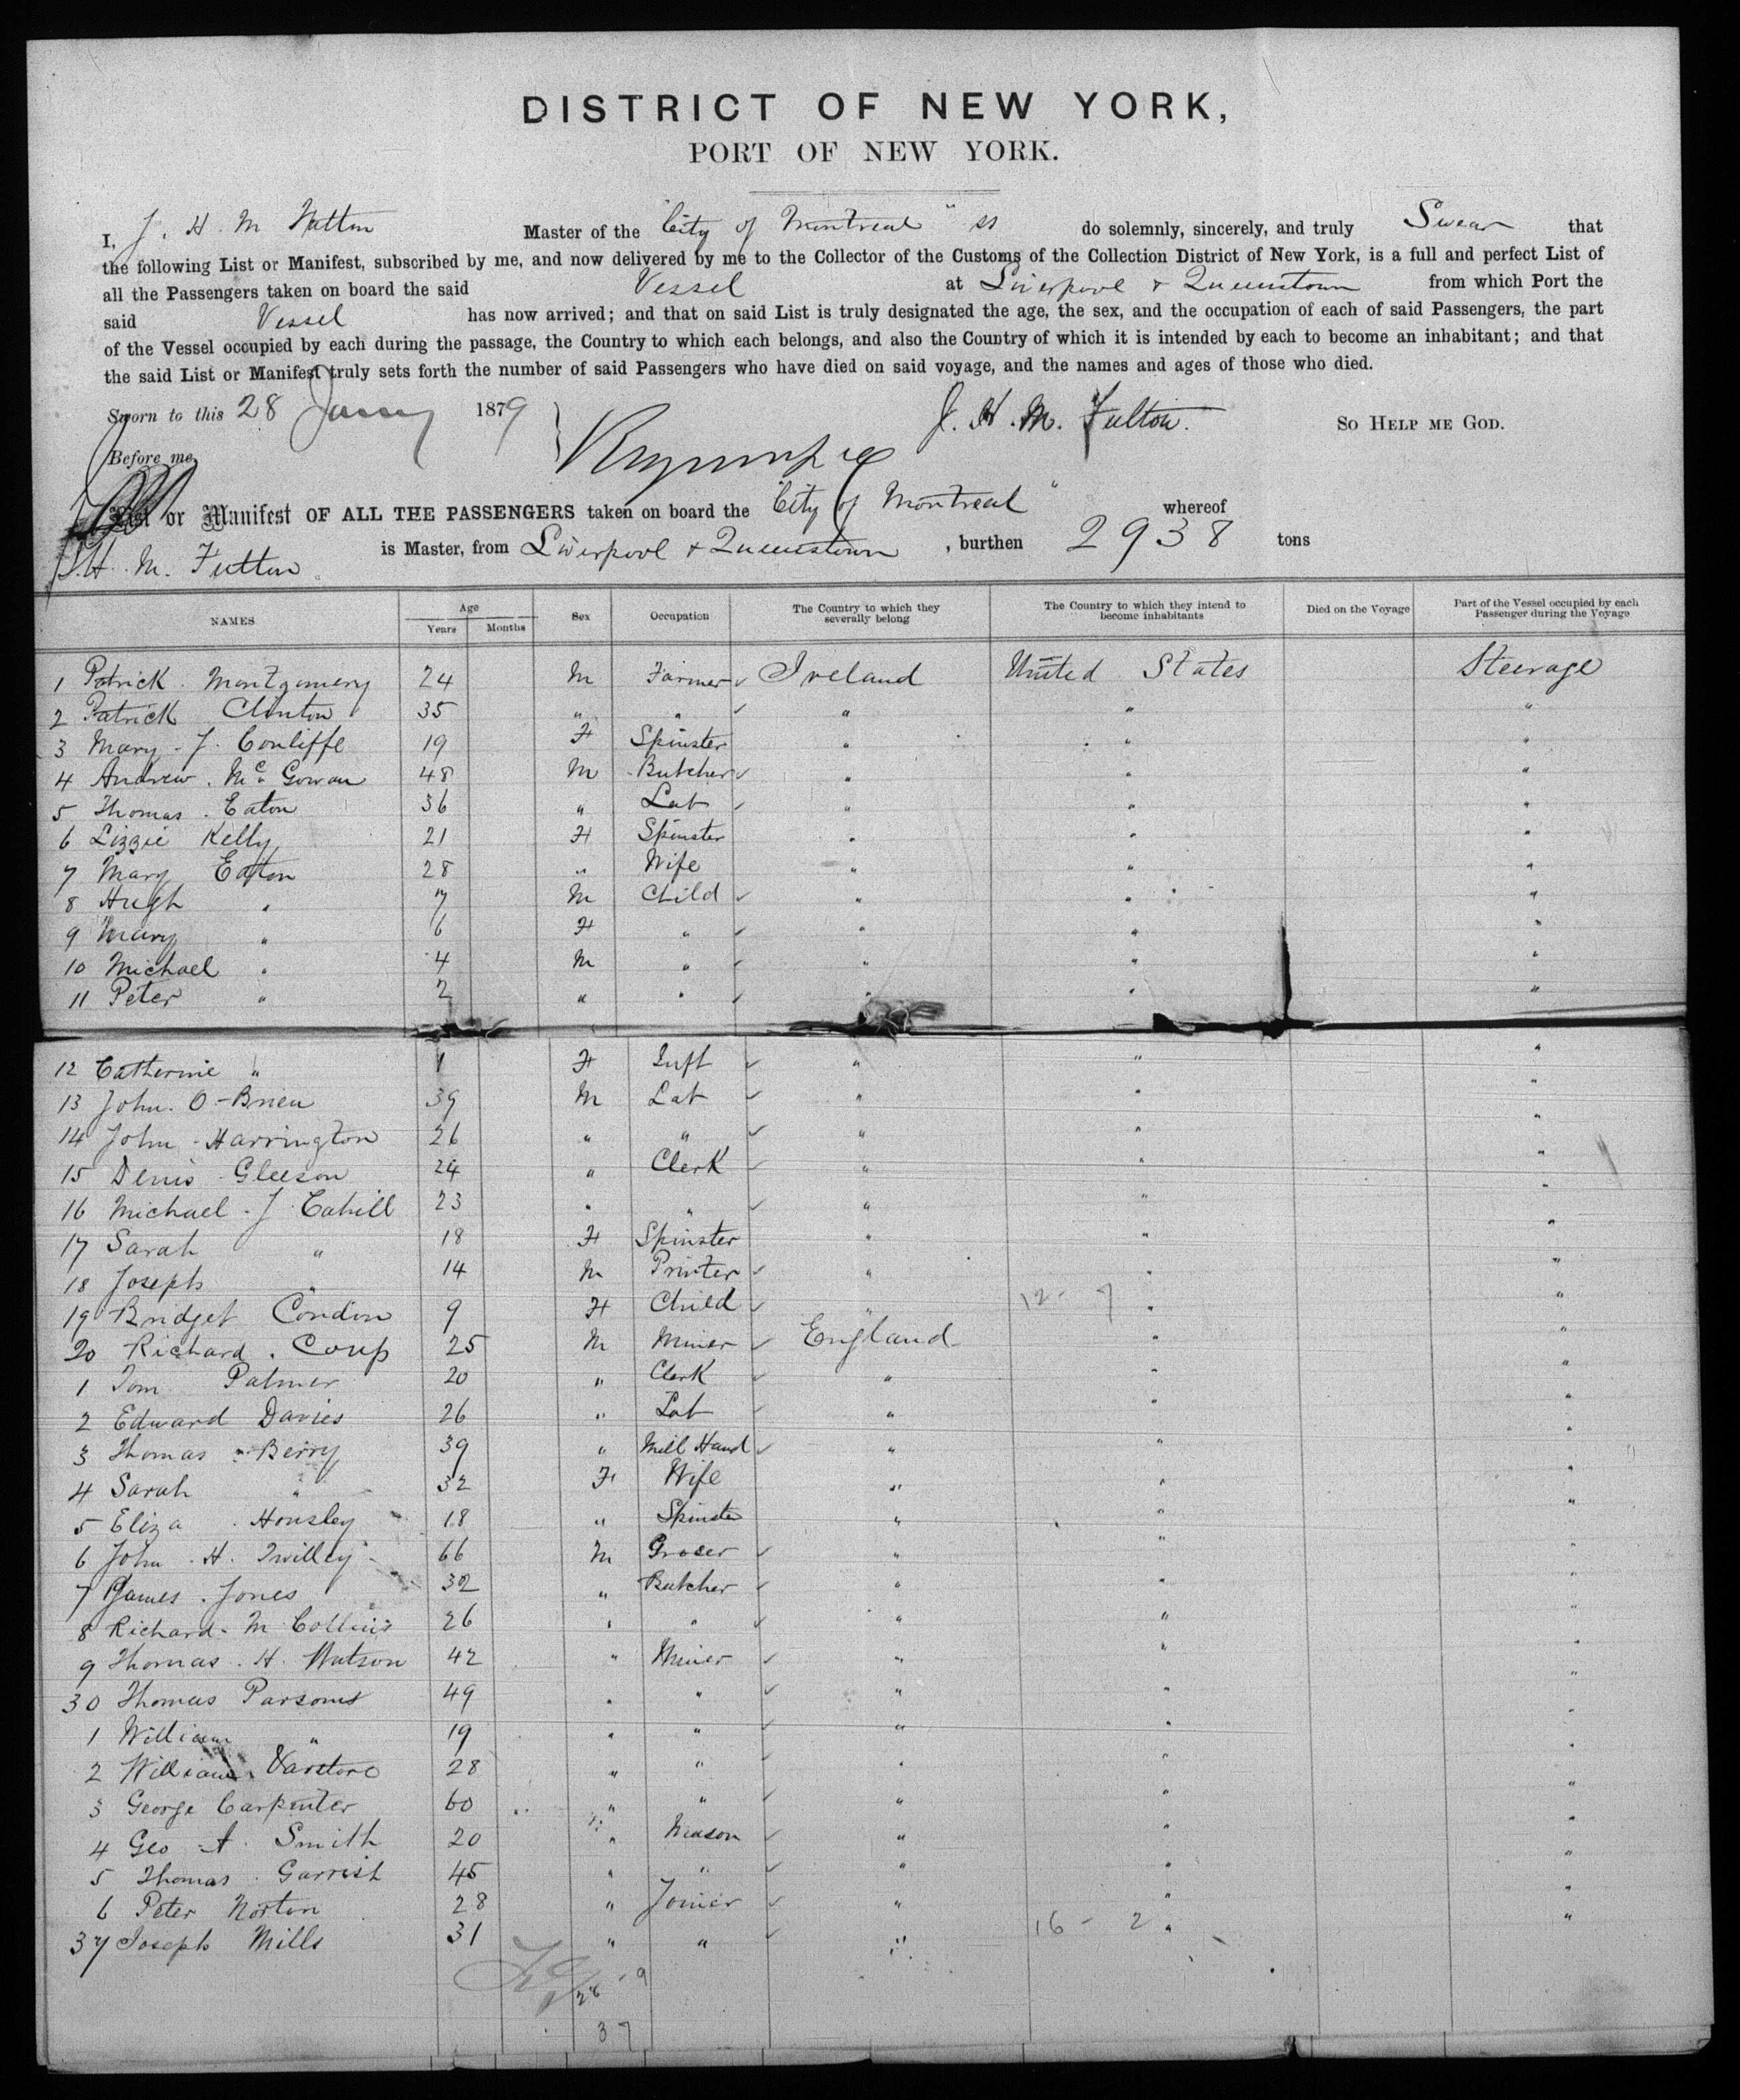 DISTRICT OF NEW YORK,
PORT OF NEW YORK.
I, J. H. M Hutton Master of the "City of Montreal" ss do solemnly, sincerely, and truly Swear that
the following List or Manifest, subscribed by me, and now delivered by me to the Collector of the Customs of the Collection District of New York, is a full and perfect List of
all the Passengers taken on board the said Vessel at Liverpool & Queenstown from which Port the
said Vessel has now arrived; and that on said List is truly designated the age, the sex, and the occupation of each of said Passengers, the part
of the Vessel occupied by each during the passage, the Country to which each belongs, and also the Country of which it is intended by each to become an inhabitant; and that
the said List or Manifest truly sets forth the number of said Passengers who have died on said voyage, and the names and ages of those who died.
Sworn to this 28 Jany 1879 J. H. M. Fulton. SO HELP ME GOD.
Before me,
List or Manifest OF ALL THE PASSENGERS taken on board the "City of Montreal" whereof
J. H. M. Futton is Master, from Liverpool & Queenstown, burthen 2938 tons
NAMES Age Years Months Sex Occupation The Country to which they severally belong The Country to which they intend to become inhabitants Died on the Voyage Part of the Vessel occupied by each Passenger during the Voyage
1 Patrick Montgomery 24 M Farmer ✓ Ireland United States Steerage
2 Patrick Clinton 35 " " ✓ " " "
3 Mary J. Conliffe 19 F Spinster " " "
4 Andrew McGowan 48 M Butcher ✓ " " "
5 Thomas Eaton 36 " Lab ✓ " " "
6 Lizzie Kelly 21 F Spinster " " "
7 Mary Eaton 28 " Wife " " "
8 Hugh " 7 M Child ✓ " " "
9 Mary " 6 F " ✓ " " "
10 Michael " 4 M " ✓ " " "
11 Peter " 2 " " ✓ " " "
12 Catherine " 1 F Inft ✓ " " "
13 John O-Brien 39 M Lab ✓ " " "
14 John Harrington 26 " " ✓ " " "
15 Denis Gleeson 24 " Clerk ✓ " " "
16 Michael J Cahill 23 " " ✓ " " "
17 Sarah " 18 F Spinster " " "
18 Joseph " 14 M Printer ✓ " " "
19 Bridget Condon 9 F Child ✓ " 12 - 7 " "
20 Richard Coup 25 M Miner ✓ England " "
1 Tom Palmer 20 " Clerk ✓ " " "
2 Edward Davies 26 " Lab ✓ " " "
3 Thomas Berry 39 " Mill Hand ✓ " " "
4 Sarah " 32 F Wife " " "
5 Eliza Housley 18 " Spinster " " "
6 John H. Twilley 66 M Grocer ✓ " " "
7 James Jones 32 " Butcher ✓ " " "
8 Richard M Collins 26 " " ✓ " " "
9 Thomas H. Watson 42 " Miner ✓ " " "
30 Thomas Parsons 49 " " ✓ " " "
1 William " 19 " " ✓ " " "
2 William 28 " " ✓ " " "
3 George Carpenter 60 " " ✓ " " "
4 Geo A. Smith 20 " Mason ✓ " " "
5 Thomas Garrish 45 " " ✓ " " "
6 Peter Norton 28 " Joiner ✓ " " "
37 Joseph Mills 31 " " ✓ " 16 - 2 " "
28 - 9
37